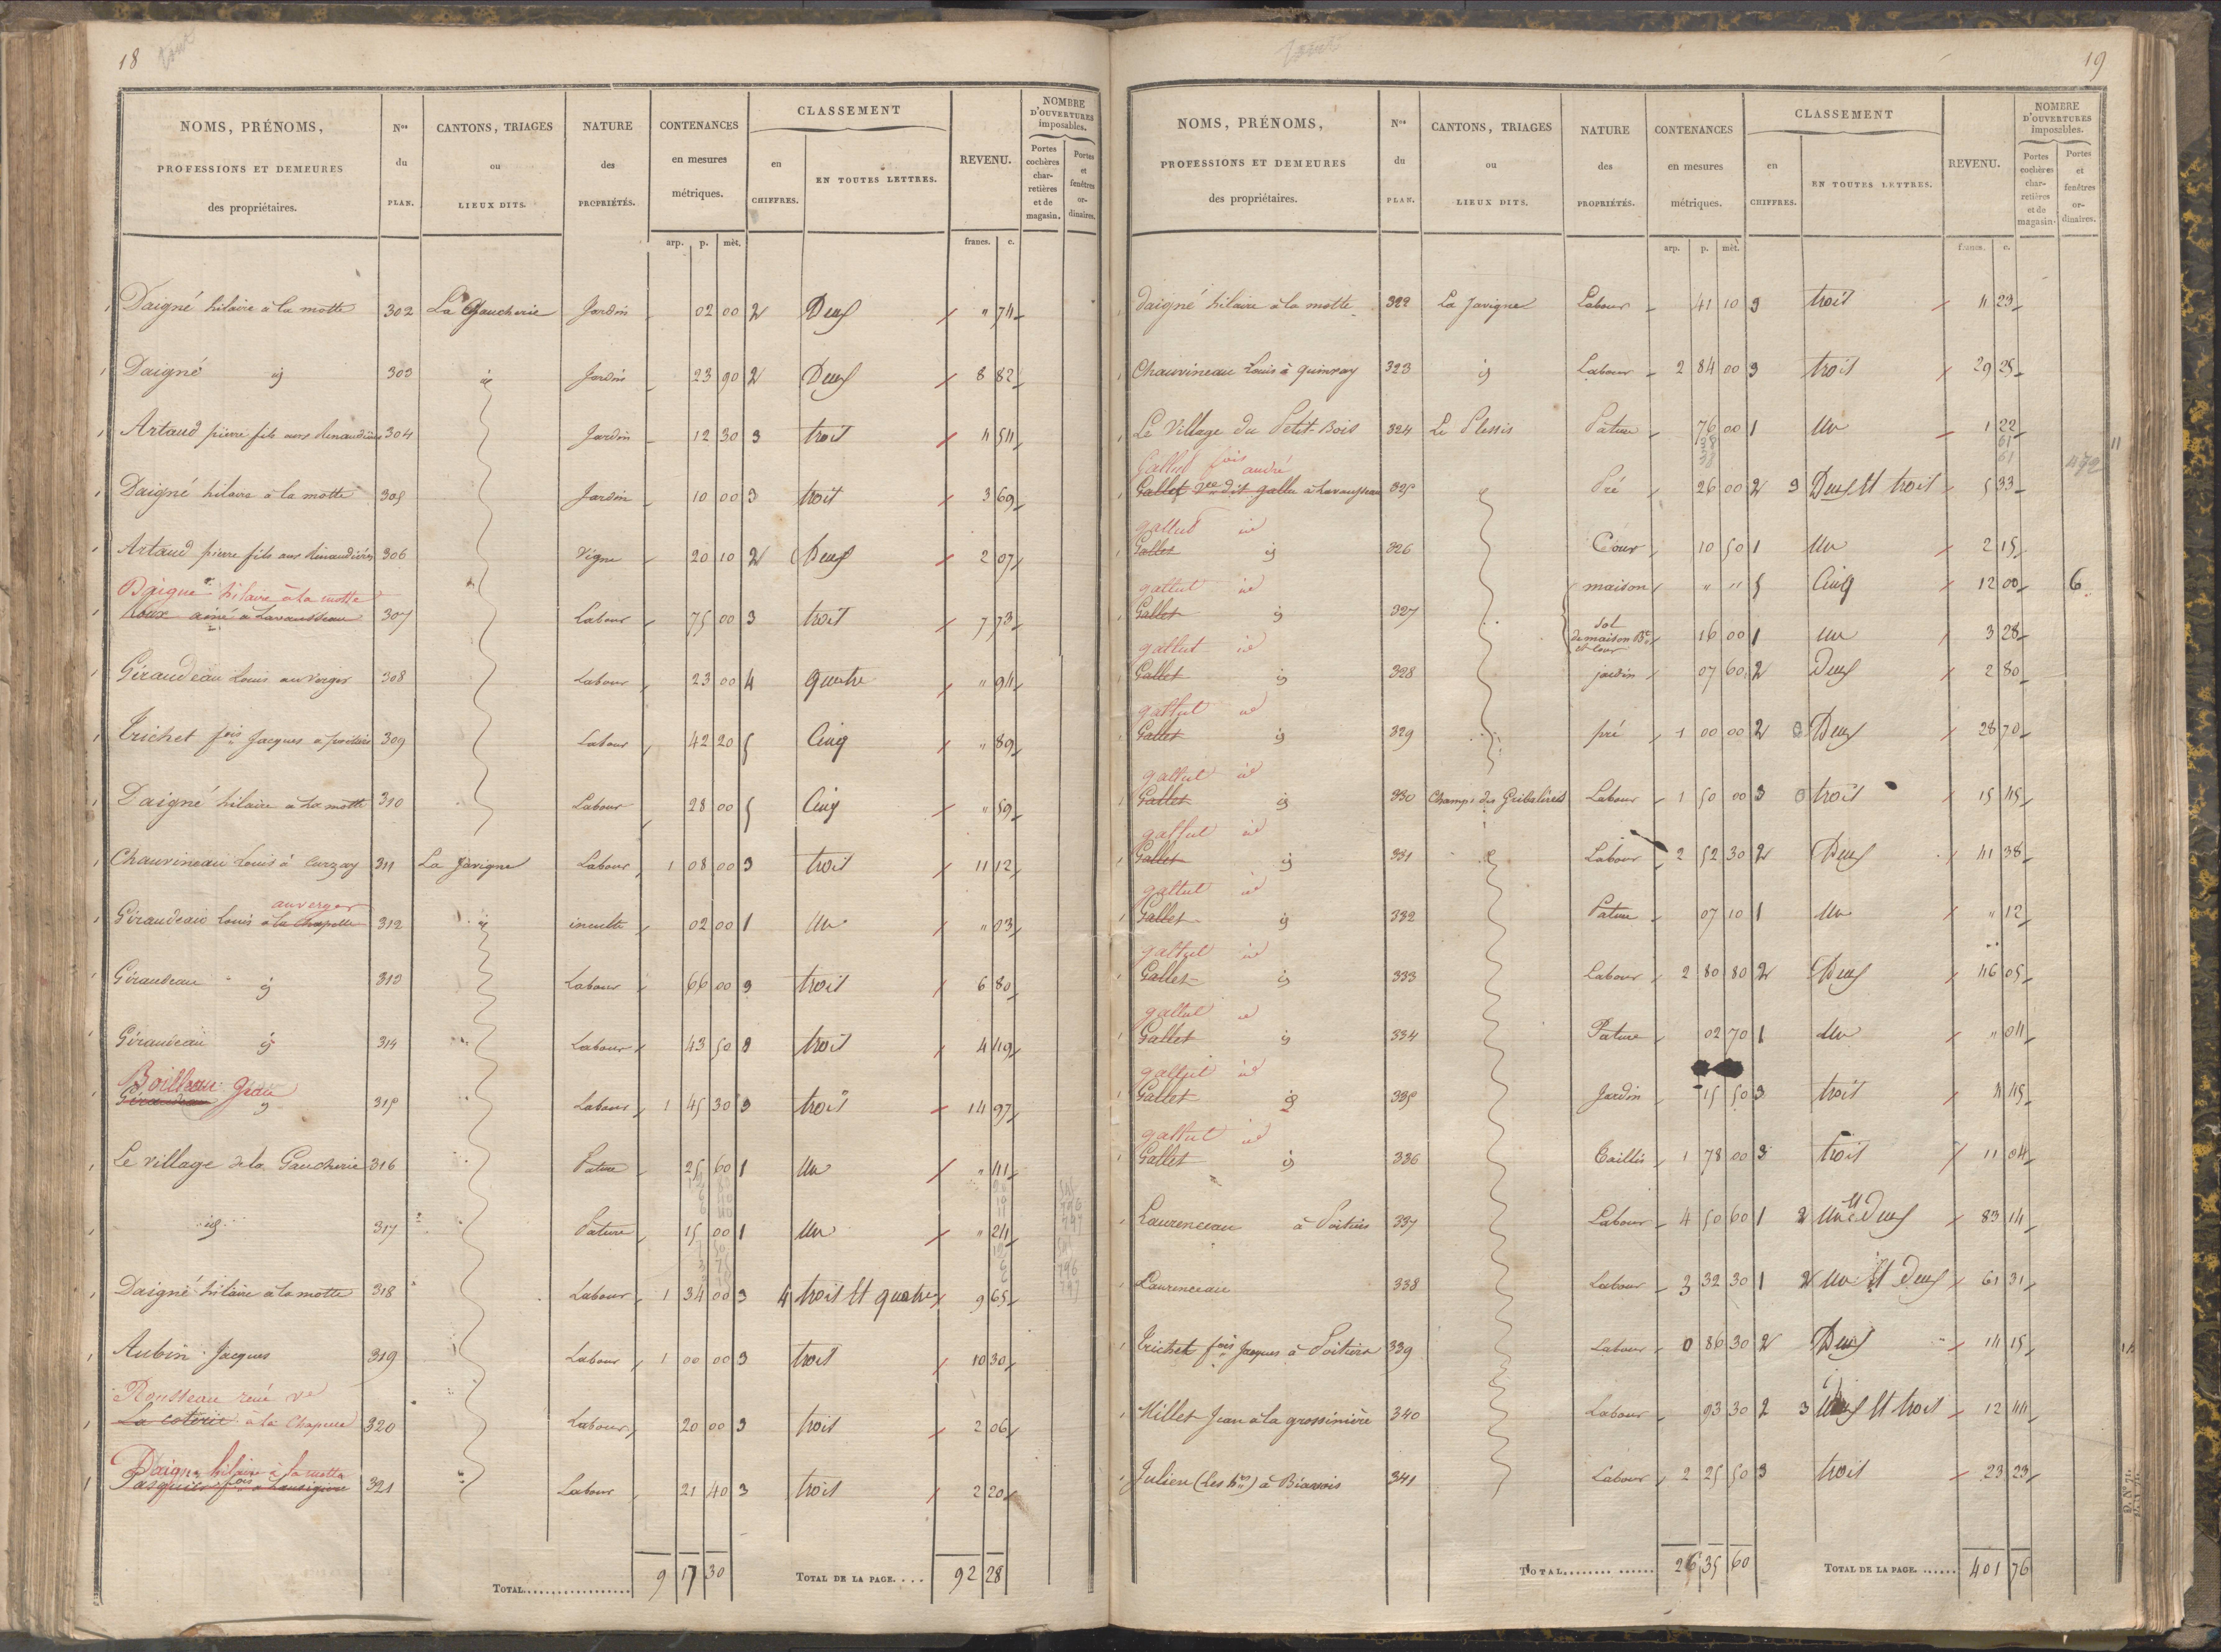 18
NOMS, PRÉNOMS, PROFESSIONS ET DEMEURES des propriétaires. | Nos du PLAN. | CANTONS, TRIAGES ou LIEUX DITS. | NATURE des PROPRIÉTÉS. | CONTENANCES en mesures métriques. | CLASSEMENT en CHIFFRES. | EN TOUTES LETTRES. | REVENU. | NOMBRE D'OUVERTURES imposables. Portes cochères charretières et de magasin. | Portes et fenêtres ordinaires.
arp. p. mèt. francs. c.
Daigné hilaire à la motte 302 La Gaucherie Jardin 02 00 2 Deux " 74
Daigné id 303 id Jardin 23 90 2 Deux 8 82
Artaud pierre fils aux Renaudières 304 Jardin 12 30 3 trois 4 54
Daigné hilaire à la motte 305 Jardin 10 00 3 trois 3 69
Artaud pierre fils aux Rinaudières 306 Vigne 20 10 2 Deux 2 07
Daigné hilaire à la motte
Roux ainé à Lavausseau 307 Labour 75 00 3 trois 7 73
Giraudeau Louis au Verger 308 Labour 23 00 4 quatre " 94
Trichet fois Jacques à poitiers 309 Labour 42 20 5 Cinq " 89
Daigné hilaire à la motte 310 Labour 28 00 5 Cinq " 59
Chauvineau Louis à Curzay 311 La Javigne Labour 1 08 00 3 trois 11 12
au verger
Giraudeau Louis à la Chapelle 312 id inculte 02 00 1 Un " 03
Giraudeau id 313 Labour 66 00 3 trois 6 80
Giraudeau id 314 Labour 43 50 3 trois 4 49
Boilleau Jean
Giraudeau id 315 Labour 1 45 30 3 trois 14 97
Le village de la Gaucherie 316 Pature 25 60 1 Un " 41
id 317 Pature 15 00 1 Un " 24
Daigné hilaire à la motte 318 Labour 1 34 00 3 4 trois et quatre 9 65
Aubin Jacques 319 Labour 1 00 00 3 trois 10 30
Rousseau rené ve
La coterie à la Chapelle 320 Labour 20 00 3 trois 2 06
Daigné hilaire à la motte
Pasquier fois à 321 Labour 21 40 3 trois 2 20
TOTAL 9 17 30 TOTAL DE LA PAGE. 92 28
19
NOMS, PRÉNOMS, PROFESSIONS ET DEMEURES des propriétaires. | Nos du PLAN. | CANTONS, TRIAGES ou LIEUX DITS. | NATURE des PROPRIÉTÉS. | CONTENANCES en mesures métriques. | CLASSEMENT en CHIFFRES. | EN TOUTES LETTRES. | REVENU. | NOMBRE D'OUVERTURES imposables. Portes cochères charretières et de magasin. | Portes et fenêtres ordinaires.
arp. p. mèt. francs. c.
Daigné hilaire à la motte 322 La Javigne Labour 41 10 3 trois 4 23
Chauvineau Louis à quinzay 323 id Labour 2 84 00 3 trois 29 25
Le Village du Petit-Bois 324 Le Plessis Pature 76 00 1 Un 1 22
38 61
38 61
Gallut fois andré 492
Gallet Vve dit gallu à Lavausseau 325 id Pré 26 00 2 3 Deux et trois 5 33
gallut id
Gallet id 326 Cour 10 50 1 Un 2 15
gallut id maison " " 5 Cinq 12 00 6
Gallet id 327
Sol de maison Bt et Cour 16 00 1 Un 3 28
gallut id
Gallet id 328 jardin 07 60 2 Deux 2 80
gallut id
Gallet id 329 pré 1 00 00 2 Deux 28 70
gallut id
Gallet id 330 Champs des Gribalières Labour 1 50 00 3 trois 15 45
gallut id
Gallet id 331 id Labour 2 52 30 2 Deux 41 38
gallut id
Gallet id 332 Pature 07 10 1 Un " 12
gallut id
Gallet id 333 Labour 2 80 80 2 Deux 46 05
gallut id
Gallet id 334 Pature 02 70 1 Un " 04
gallut id
Gallet id 335 Jardin 15 50 3 trois 4 45
gallut id
Gallet id 336 Taillis 1 78 00 3 trois 11 04
Laurenceau à Poitiers 337 Labour 4 50 60 1 2 Un et Deux 83 14
Laurenceau 338 Labour 3 32 30 1 2 Un et Deux 61 31
Trichet fois Jacques à Poitiers 339 Labour 0 86 30 2 Deux 14 15
Millet Jean à la grossinière 340 Labour 93 30 2 3 Deux et trois 12 44
Julien (Les hers) à Biarrois 341 Labour 2 25 50 3 trois 23 23
TOTAL 26 35 60 TOTAL DE LA PAGE. 401 76